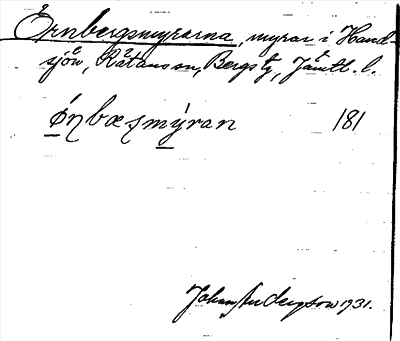 Örnbergsmyrarna, myrar i Hand-
sjön, Rätans sn, Bergs tg, Jämtl. l.
ǿŋbæʃmýran 181
Johan Anderson 1931.